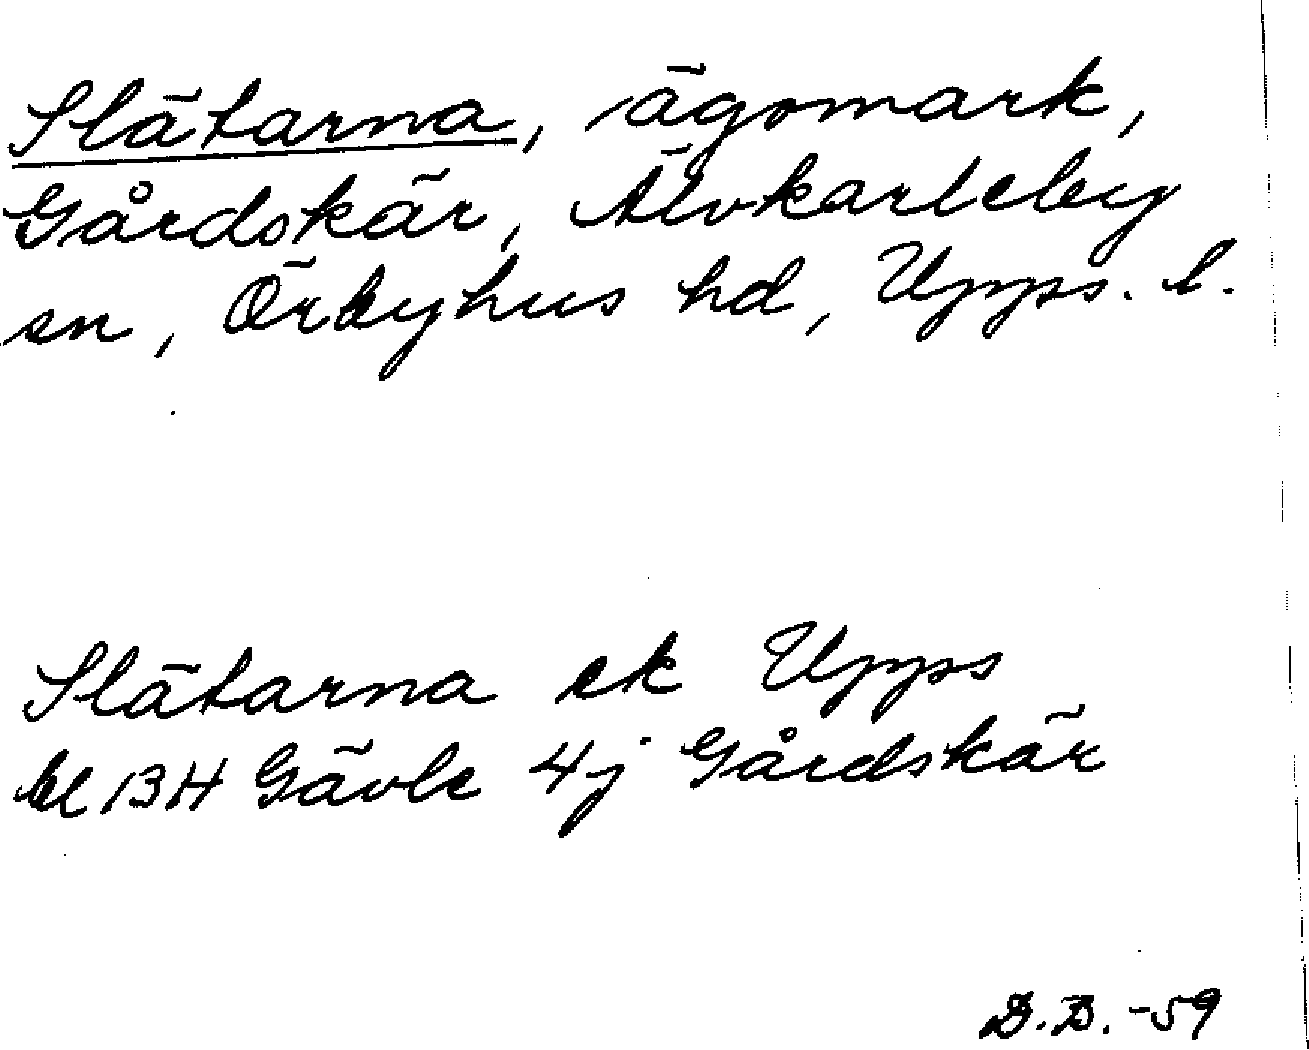 Slätarna, ägomark,
Gårdskär, Älvkarleby
sn, Örbyhus hd, Upps. l.
Slätarna ek Upps
bl 13H Gävle 4j Gårdskär
D.B. -59